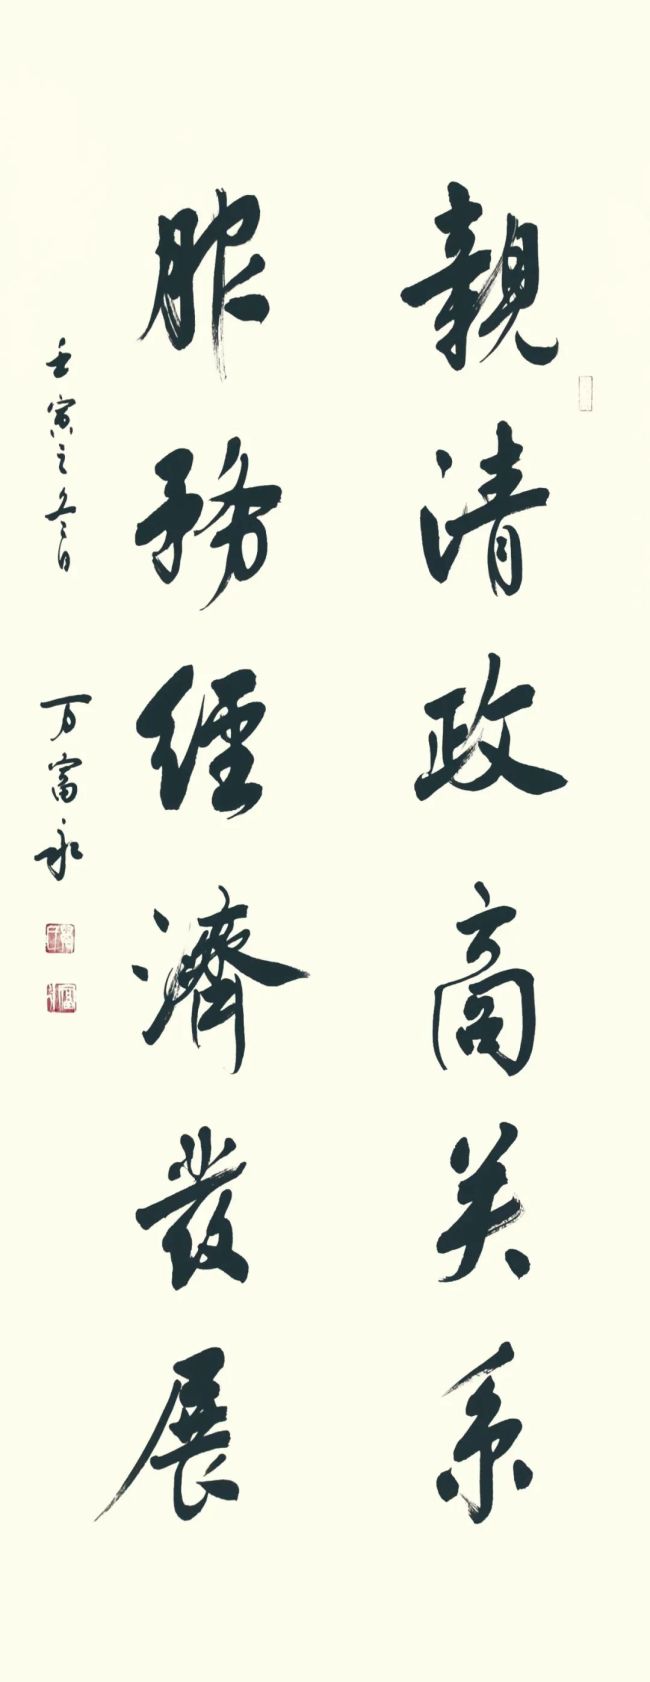 親清政商关系
服務經濟發展
壬寅之冬日
万富永